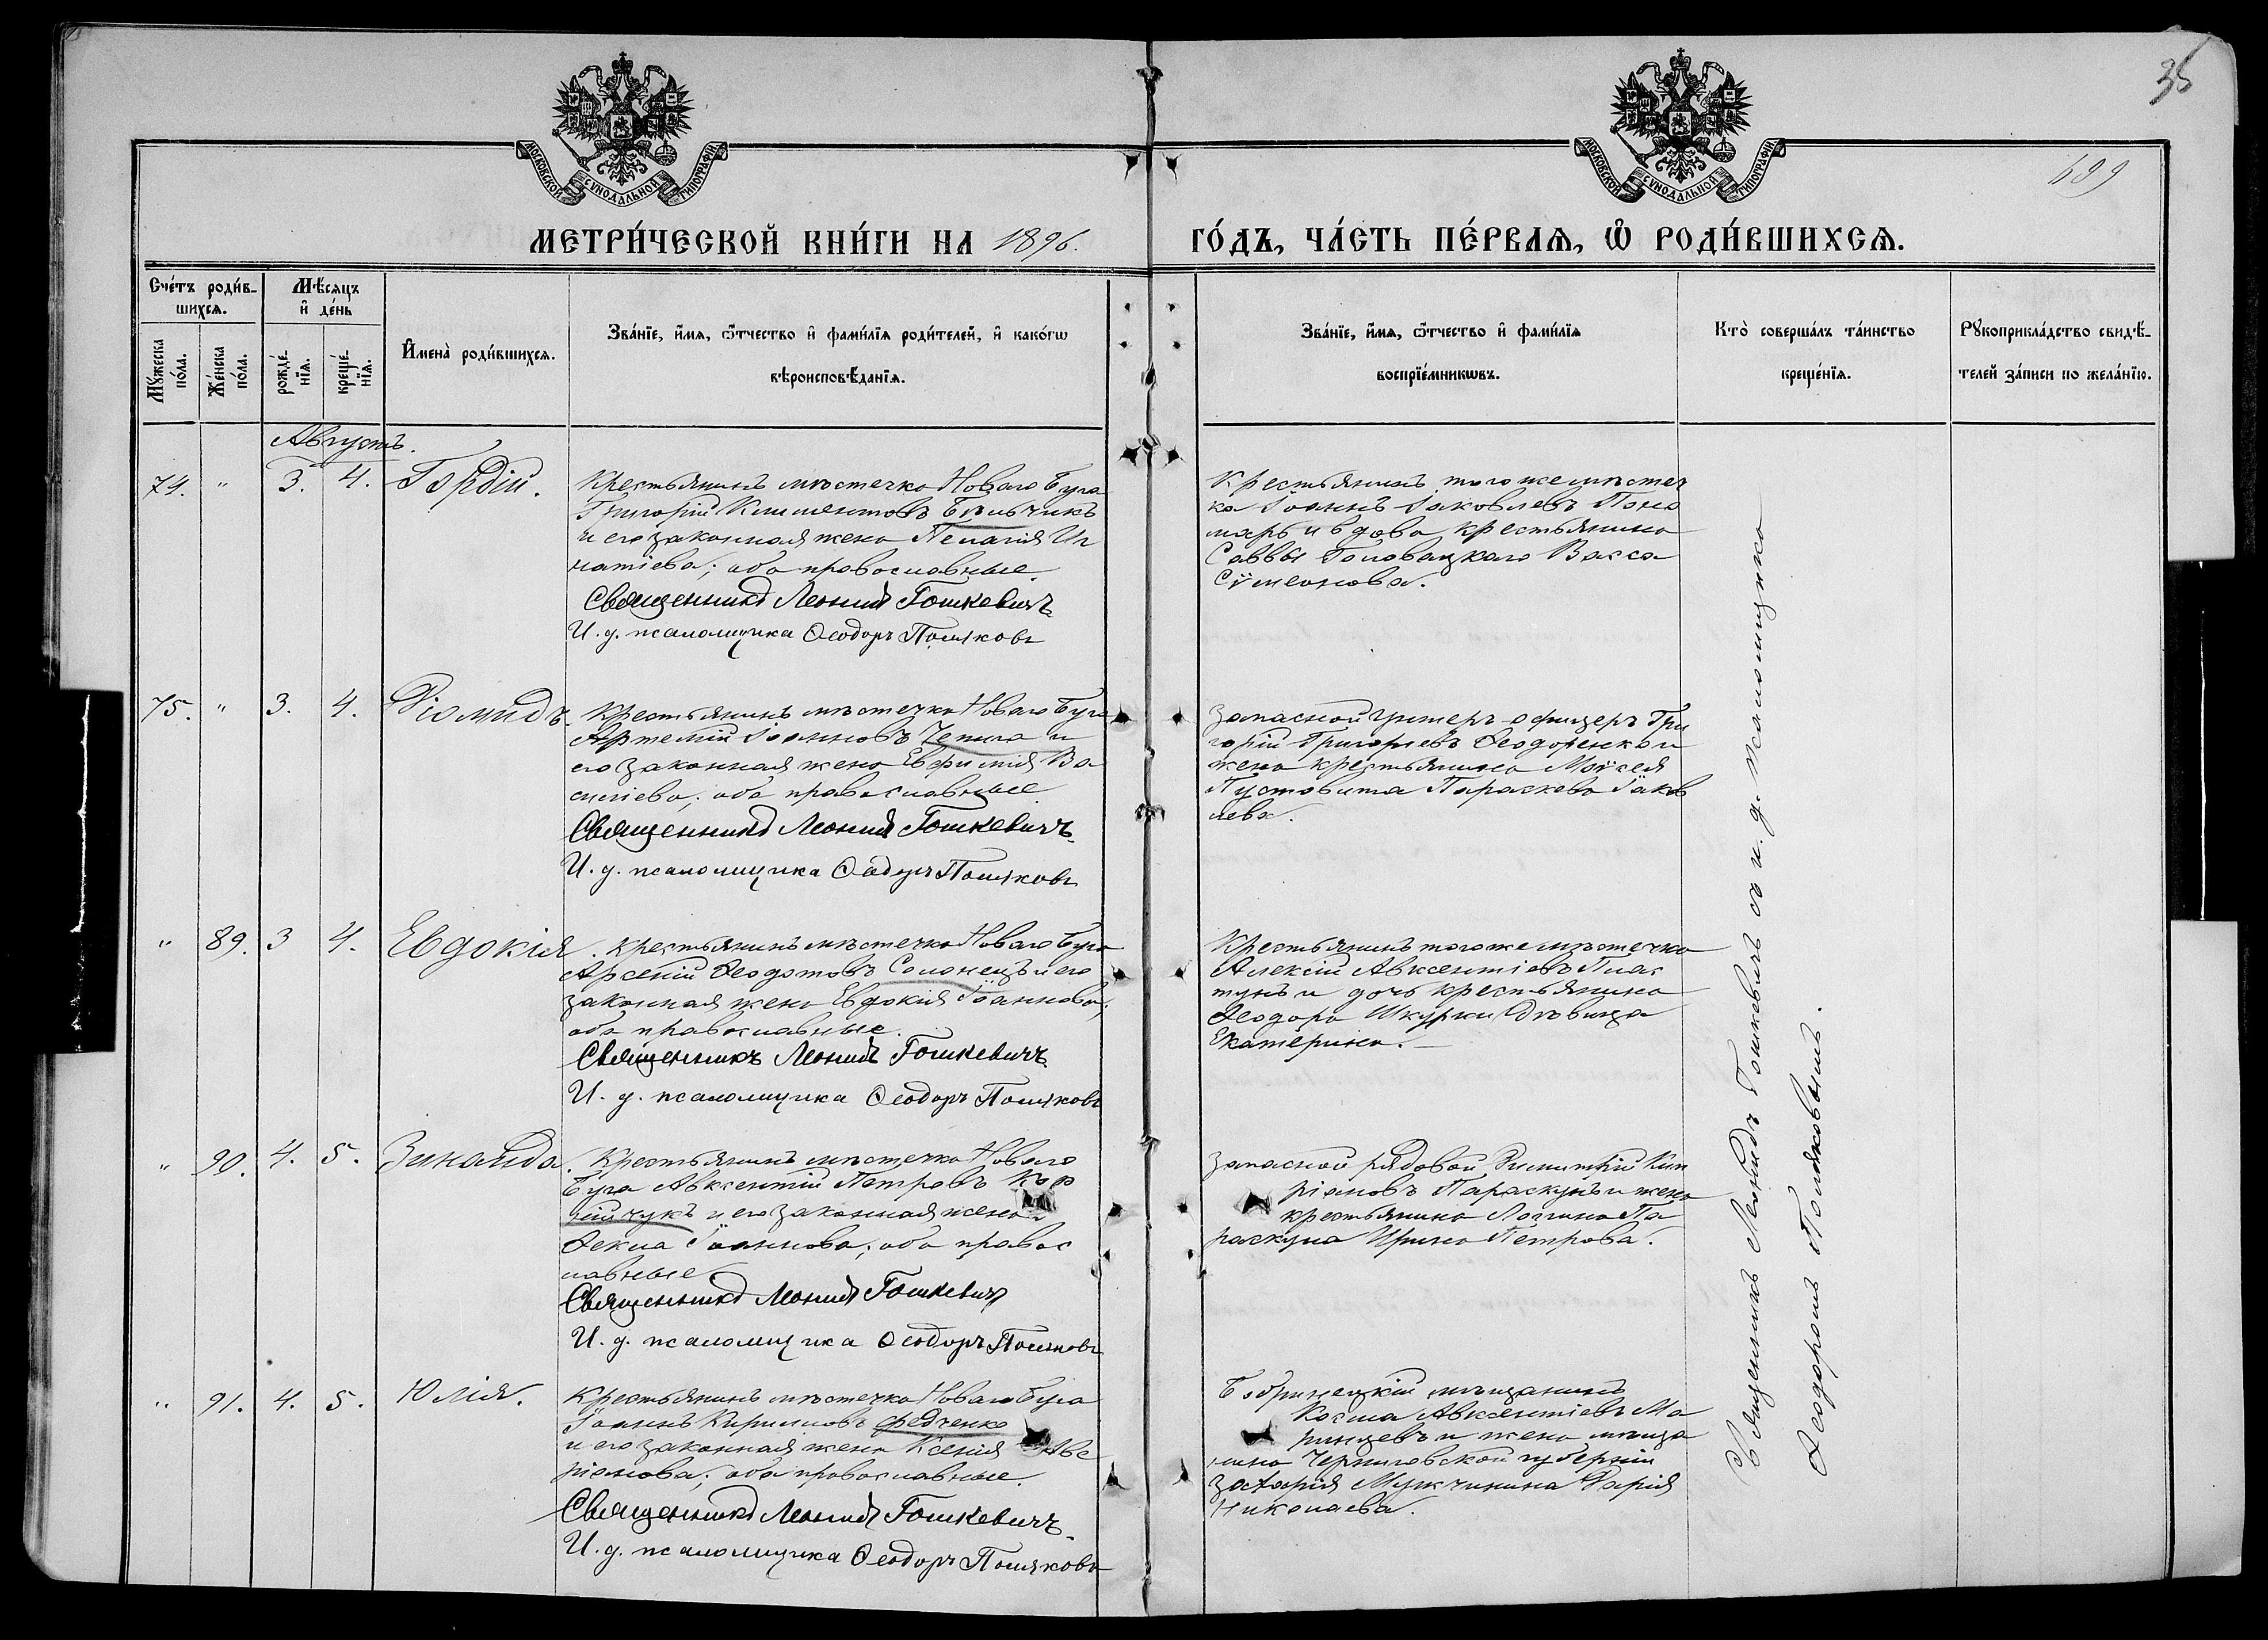 35
499
МОСКОВСКОЙ СУНОДАЛЬНОЙ ТИПОГРАФІИ
МОСКОВСКОЙ СУНОДАЛЬНОЙ ТИПОГРАФІИ
МЕТРИ́ЧЕСКОЙ КНИ́ГИ НА 1896. ГО́ДЪ, ЧА́СТЬ ПЕ́РВАѦ, Ѡ РОДИ́ВШИХСѦ.
Сче́тъ роди́в-
шихсѧ.
Мꙋ́жеска по́ла.
Же́нска по́ла.
Мѣ́сѧцъ
и҆ де́нь
рожде́-
нїѧ.
креще́-
нїѧ.
И҆мена̀ роди́вшихсѧ.
Зва́нїе, и҆́мѧ, ѻ҆́тчество и҆ фами́лїѧ роди́телей, и҆ како́гѡ
вѣроисповѣ́данїѧ.
Зва́нїе, и҆́мѧ, ѻ҆́тчество и҆ фами́лїѧ
воспрїе́мникѡвъ.
Кто̀ соверша́лъ та́инство
креще́нїѧ.
Рꙋкоприкла́дство свидѣ́-
телей за́писи по жела́нїю.
Августъ.
74. " 3. 4. Гордій.
Крестьянинъ мѣстечка Новаго Буга
Григорій Климентовъ Бѣльчикъ
и его законная жена Пелагія Иг
натіева; оба православные.
Священникъ Леонидъ Гошкевичъ
И. д. псаломщика Ѳеодоръ Поляковъ
Крестьянинъ того же мѣстеч
ка Іоаннъ Іаковлевъ Поно
марь и вдова крестьянина
Саввы Головацкаго Васса
Сѵмеонова.
75. " 3. 4. Діомидъ.
Крестьянинъ мѣстечка Новаго Буга
Артемій Іоанновъ Чепига и
его законная жена Евфимія Ва
силіева; оба православные.
Священникъ Леонидъ Гошкевичъ
И. д. псаломщика Ѳеодоръ Поляковъ
Запасной унтеръ-офицеръ Гри
горій Григорьевъ Ѳеодоренко и
жена крестьянина Моѵсея
Пустовита Параскева Іаков
лева.
" 89. 3 4. Евдокія.
Крестьянинъ мѣстечка Новаго Буга
Арсеній Ѳеодотовъ Солонецъ и его
законная жена Евдокія Іоаннова;
оба православные.
Священникъ Леонидъ Гошкевичъ
И. д. псаломщика Ѳеодоръ Поляковъ
Крестьянинъ того же мѣстечка
Алексій Авксентіевъ Плас
тунъ и дочь крестьянина
Ѳеодора Шкурки дѣвица
Екатерина.
" 90. 4. 5. Зинаида.
Крестьянинъ мѣстечка Новаго
Буга Авксентій Петровъ Кор
нійчукъ и его законная жена
Ѳекла Іоаннова; оба правос
лавные
Священникъ Леонидъ Гошкевичъ
И. д. псаломщика Ѳеодоръ Поляковъ
Запасной рядовой Димитрій Кип
ріановъ Параскунъ и жена
крестьянина Логгина Па
раскуна Ирина Петрова.
" 91. 4. 5. Юлія.
Крестьянинъ мѣстечка Новаго Буга
Іоаннъ Кирилловъ Федченко
и его законная жена Ксенія Аве
ріанова; оба православные.
Священникъ Леонидъ Гошкевичъ
И. д. псаломщика Ѳеодоръ Поляковъ
Бобринецкій мѣщанинъ
Косма Авксентіевъ Ма
ринцевъ и жена мѣща
нина Черниговской губерніи
Захарія Мужчинина Дарія
Николаева.
Священникъ Леонидъ Гошкевичъ съ и. д. псаломщика
Ѳеодоромъ Поляковымъ.